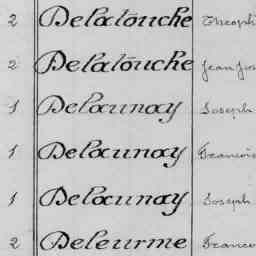 2 Delatouche Théoph
2 Delatouche Jean Jos
1 Delaunay Joseph
1 Delaunay Francois
1 Delaunay Joseph
2 Deleurme Franco